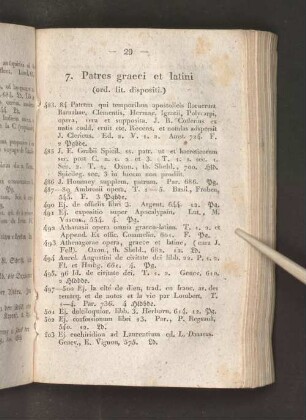 — 29 —
7. Patres graeci et latini
(ord. lit. dispositi.)
483. 84 Patrum qui temporibus apostolicis floruerunt
Barnabae, Clementis, Hermae, Ignatii, Polycarpi,
opera, vera et supposita. J. B. Cotlerius ex
mstis codd. eruit etc. Recens. et notulas adspersit
J. Clericus. Ed. 2. V. 1. 2. Amst. 724. F.
2 Pgbde.
485 J. E. Grabii Spicil. ss. patr. ut et haereticorum
sec. post C. 1. 2. et 3. T. 1. 2. sec. 1.
Sec. 2. T. 2. Oxon., th. Sheld., 700. Ejsd.
Spicileg. sec. 3 in hoc non prodiit.
486 J. Hommey supplem. patrum. Par. 686. Pg.
487—89 Ambrosii opera. T. 1—5. Basil., Froben,
545. F. 3 Psbde.
490 Ej. de officiis libri 3. Argent. 654. 12. Pg.
491 Ej. expositio super Apocalypsin. Lut., M.
544. 8. Pg.
492 Athanasii opera omnia graeco-latina. T. 1. 2. et
Append. Ex offic. Commelin., 601. F. Pg.
493 Athenagorae opera, graece et latine, (cura J.
Fell). Oxon., th. Sheld, 682.
494 Aurel. Augustini de civitate dei libb. 22. P. 1. 2.
Ff. et Hambg. 661. 4. Pg.
495. 96 Id. de civitate dei. T. 1. 2. Genev. 610.
2 Hlbbde.
497—500 Ej. la cité de dieu, trad. en franc. av. des
remarq. et de notes et la vie par Lombert. T.
1—4. Par. 736. 4 Hlbbde.
501 Ej.
502 Ej. confessionum libri 13. Par., P. Regnault,
540. 12. Lb.
503 Ej. enchiridion ad Laurentium ed. L. Danaeus.
Genev., E. Vignon, 575. Lb.